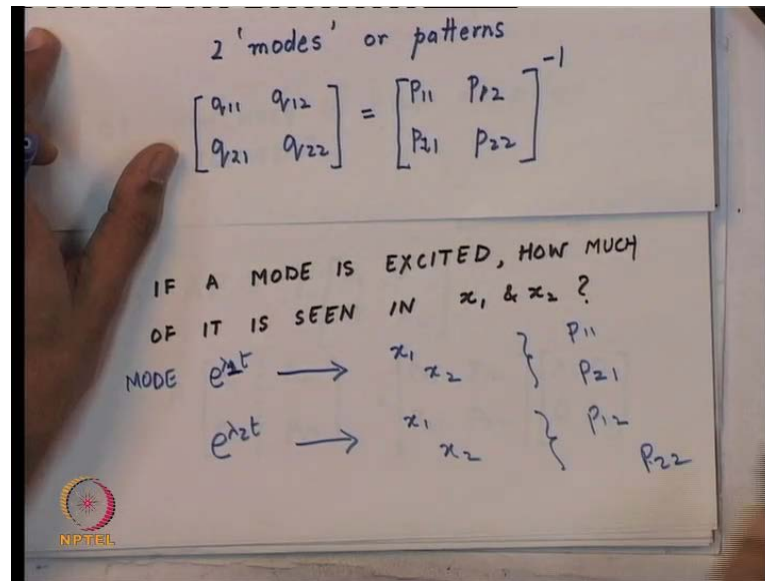 2 'modes' or patterns
[q11 q12 = [P11 P12 ]-1
q21 q22] P21 P22
IF A MODE IS EXCITED, HOW MUCH
OF IT IS SEEN IN x1 & x2 ?
MODE eλ1t → x1 x2 } P11 P21
eλ2t → x1 x2 } P12 P22
NPTEL